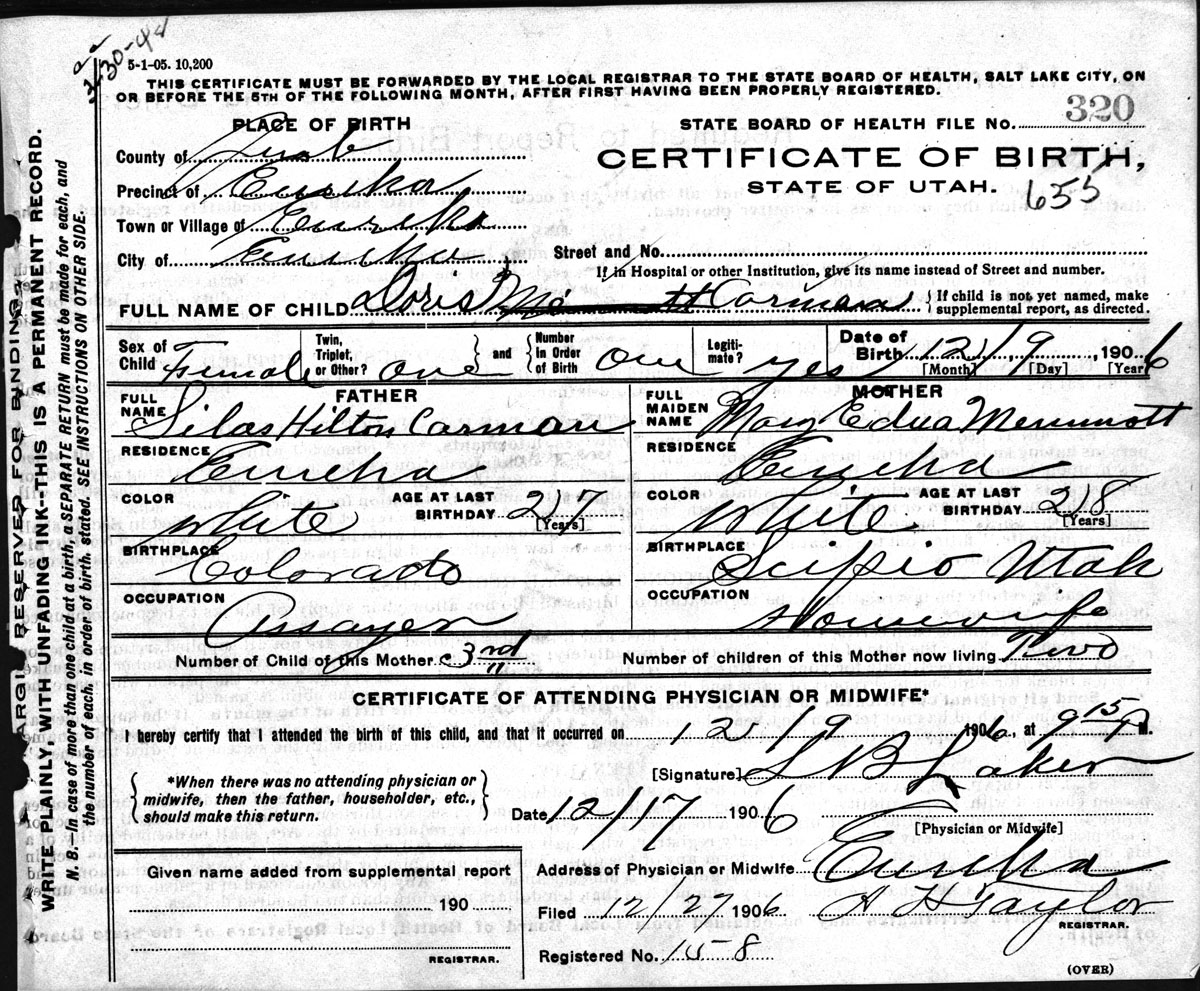 3-30-44
5-1-05. 10,200
THIS CERTIFICATE MUST BE FORWARDED BY THE LOCAL REGISTRAR TO THE STATE BOARD OF HEALTH, SALT LAKE CITY, ON
OR BEFORE THE 5TH OF THE FOLLOWING MONTH, AFTER FIRST HAVING BEEN PROPERLY REGISTERED.
PLACE OF BIRTH
County of Juab
Precinct of Eureka
Town or Village of Eureka
City of Eureka
STATE BOARD OF HEALTH FILE No. 320
CERTIFICATE OF BIRTH,
STATE OF UTAH.
655
Street and No.
If in Hospital or other Institution, give its name instead of Street and number.
FULL NAME OF CHILD Doris Carman
{If child is not yet named, make
supplemental report, as directed.
Sex of Child Female
Twin, Triplet, or Other? one } and { Number In Order of Birth one
Legitimate? yes
Date of Birth 12 / 9, 1906
[Month] [Day] [Year]
FATHER
FULL NAME Silas Hilton Carman
RESIDENCE Eureka
COLOR White
AGE AT LAST BIRTHDAY 27 [Years]
BIRTHPLACE Colorado
OCCUPATION Assayer
MOTHER
FULL MAIDEN NAME Mary Edna Merrmott
RESIDENCE Eureka
COLOR White
AGE AT LAST BIRTHDAY 28 [Years]
BIRTHPLACE Scipio Utah
OCCUPATION Housewife
Number of Child of this Mother 3rd
Number of children of this Mother now living Two
CERTIFICATE OF ATTENDING PHYSICIAN OR MIDWIFE*
I hereby certify that I attended the birth of this child, and that it occurred on 12/9 1906, at 9 15 P. M.
{*When there was no attending physician or
midwife, then the father, householder, etc.,
should make this return.}
[Signature] S B Laker
Date 12/17 1906
[Physician or Midwife]
Given name added from supplemental report
190
REGISTRAR.
Address of Physician or Midwife Eureka
Filed 12/27 1906 A H Taylor
REGISTRAR.
Registered No. 158
(OVER)
MARGIN RESERVED FOR BINDING.
WRITE PLAINLY, WITH UNFADING INK-THIS IS A PERMANENT RECORD.
N. B.—In case of more than one child at a birth a SEPARATE RETURN must be made for each, and
the number of each, in order of birth, stated. SEE INSTRUCTIONS ON OTHER SIDE.